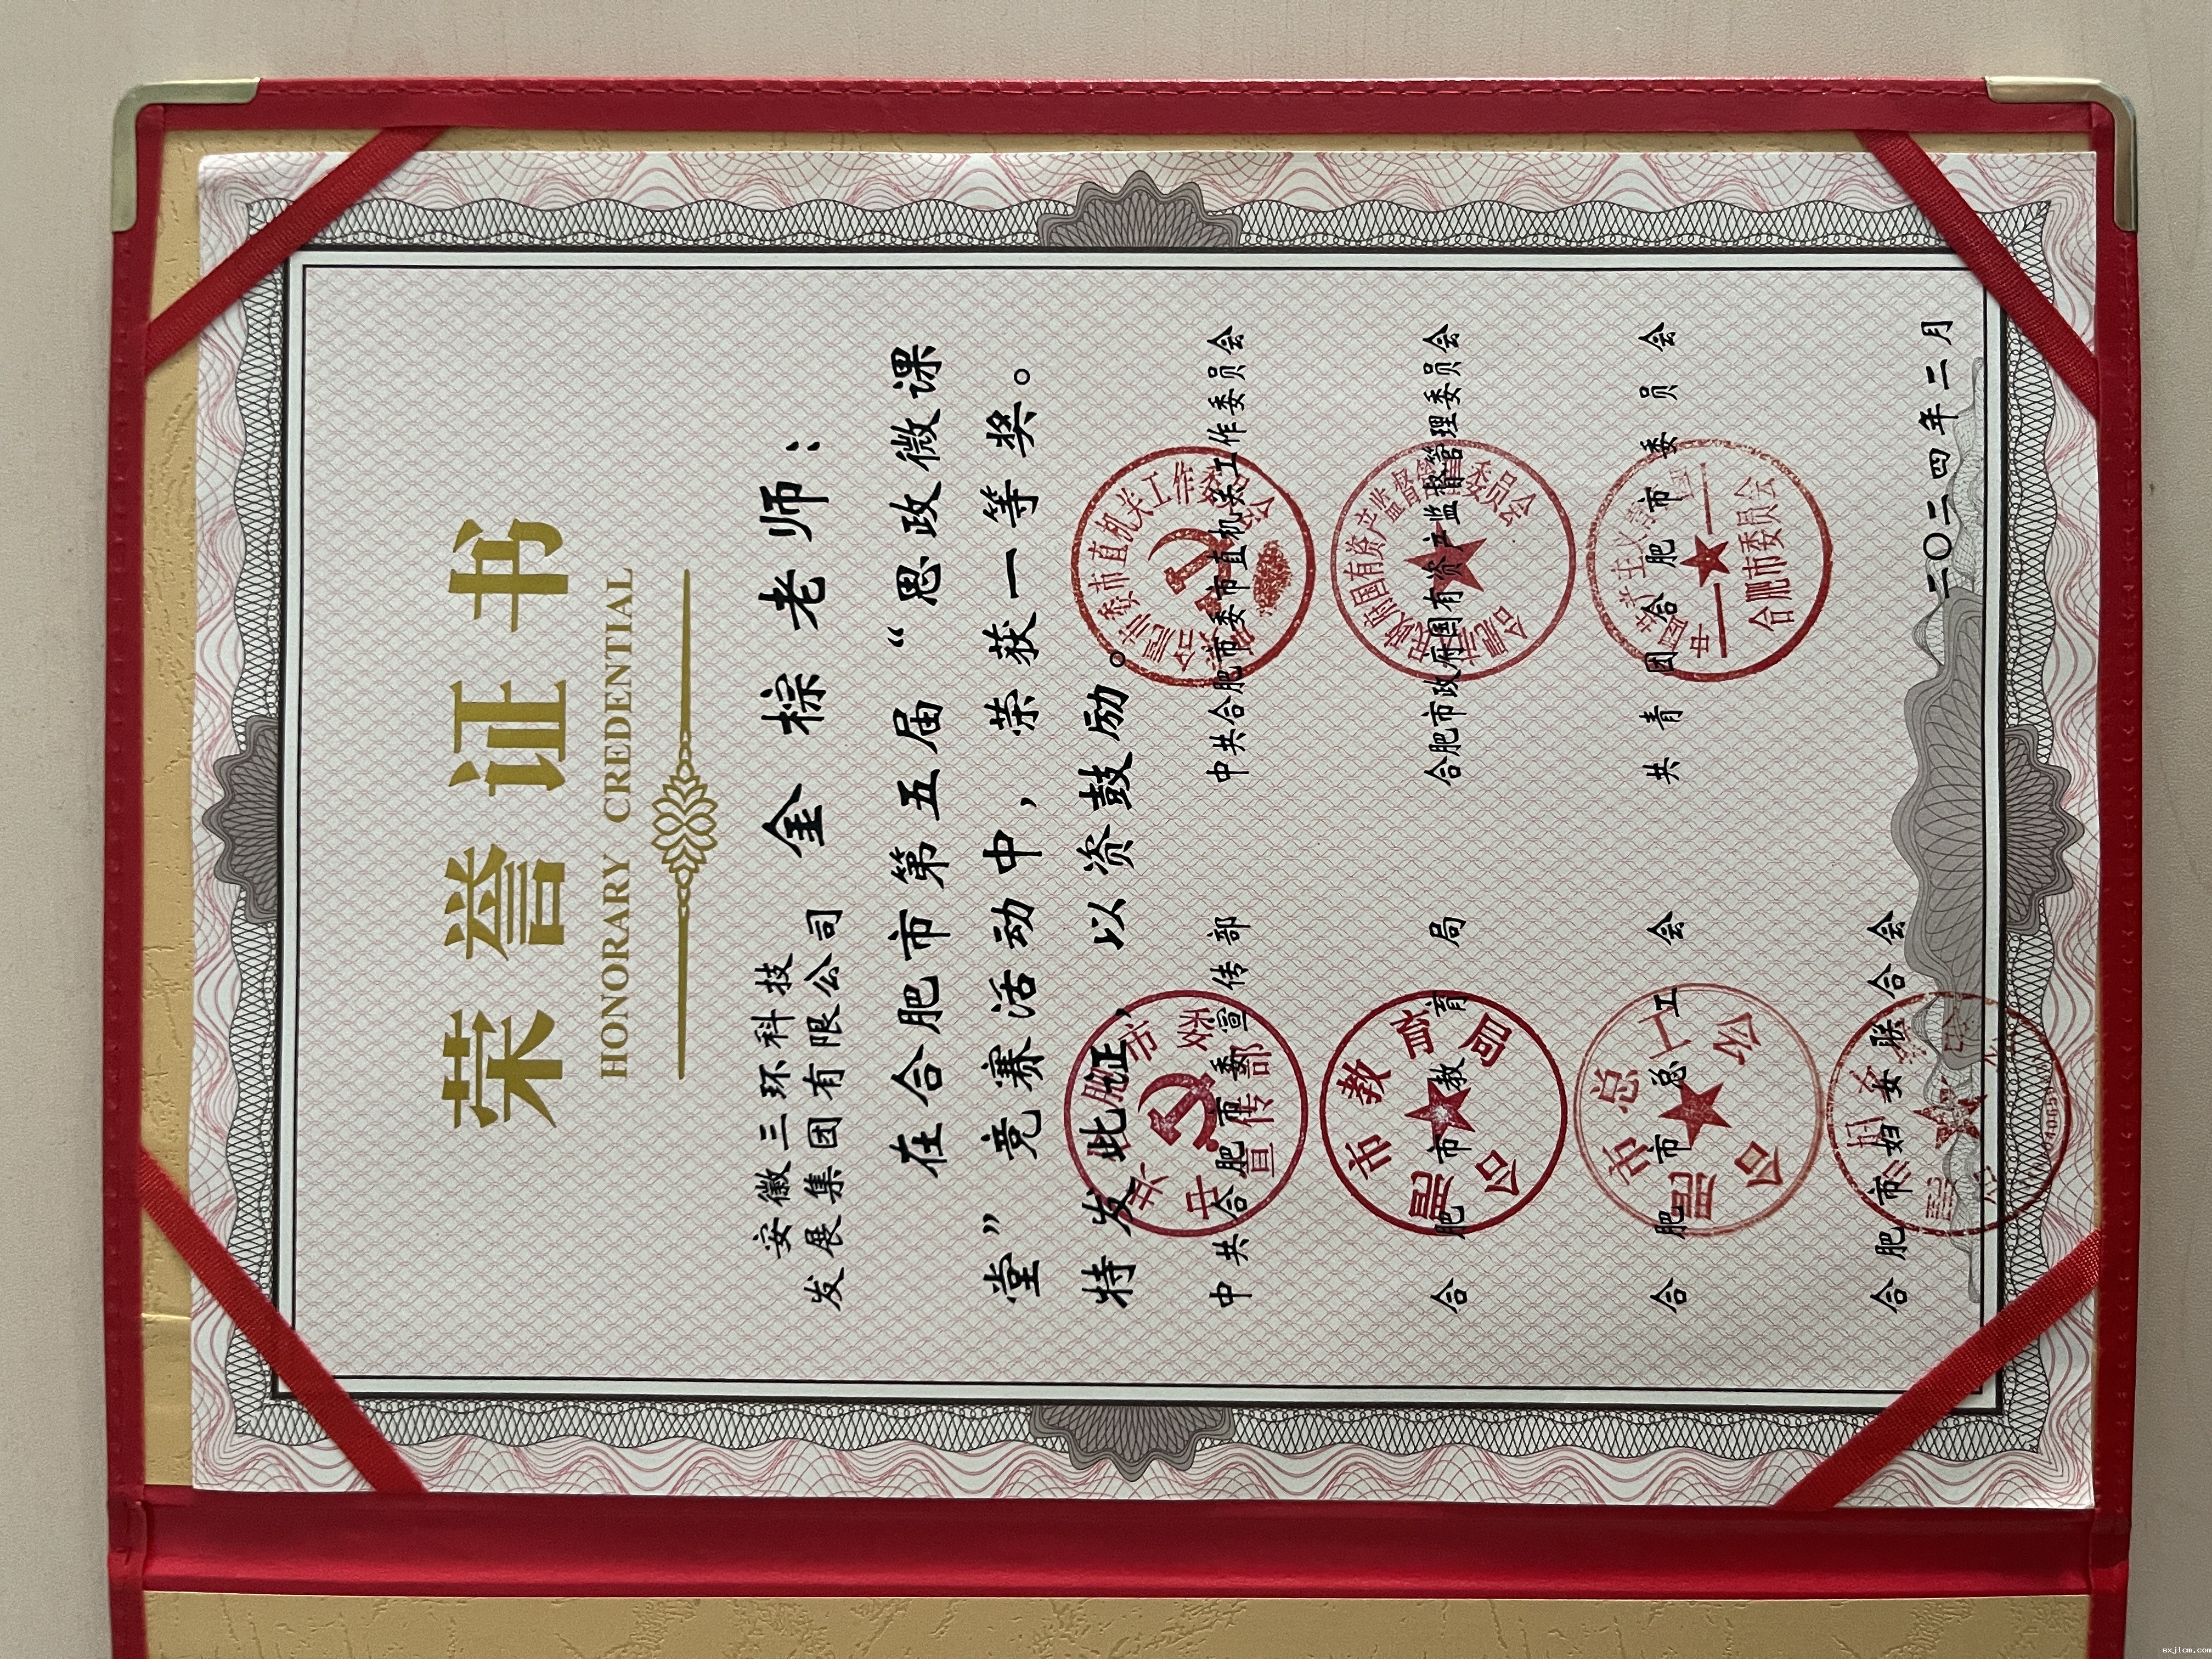 荣誉证书
HONORARY CREDENTIAL
安徽三环科技
发展集团有限公司
金棕老师：
在合肥市第五届“思政微课
堂”竞赛活动中，荣获一等奖。
特发此证，以资鼓励。
中共合肥市委宣传部
中共合肥市委市直机关工作委员会
合肥市教育局
合肥市政府国有资产监督管理委员会
合肥市总工会
共青团合肥市委员会
合肥市妇女联合会
二〇二四年二月
sxjlcm.com